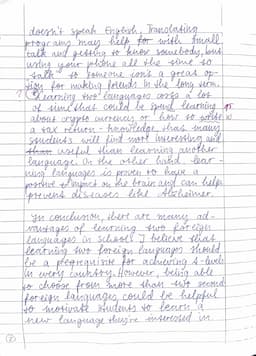 doesn't speak English. Translating
programs may help for with small
talk and getting to know somebody, but
using your phone all the time to
talk to someone isn't a great op-
tion for making friends in the long term.
? Learning two languages costs a lot
of time that could be spent learning
about crypto currency or how to write
a tax return - knowledge that many
students will find more interesting and
than useful than learning another
language. On the other hand, lear-
ning languages is proven to have a
positive impact on the brain and can help
prevent diseases like Alzheimer.
In conclusion, there are many ad-
vantages of learning two foreign
languages in schools. I believe that
learning two foreign languages should
be a prerequisite for achieving A-levels
in every country. However, being able
to choose from more than two second
foreign languages could be helpful
to motivate students to learn a
new language they're interested in